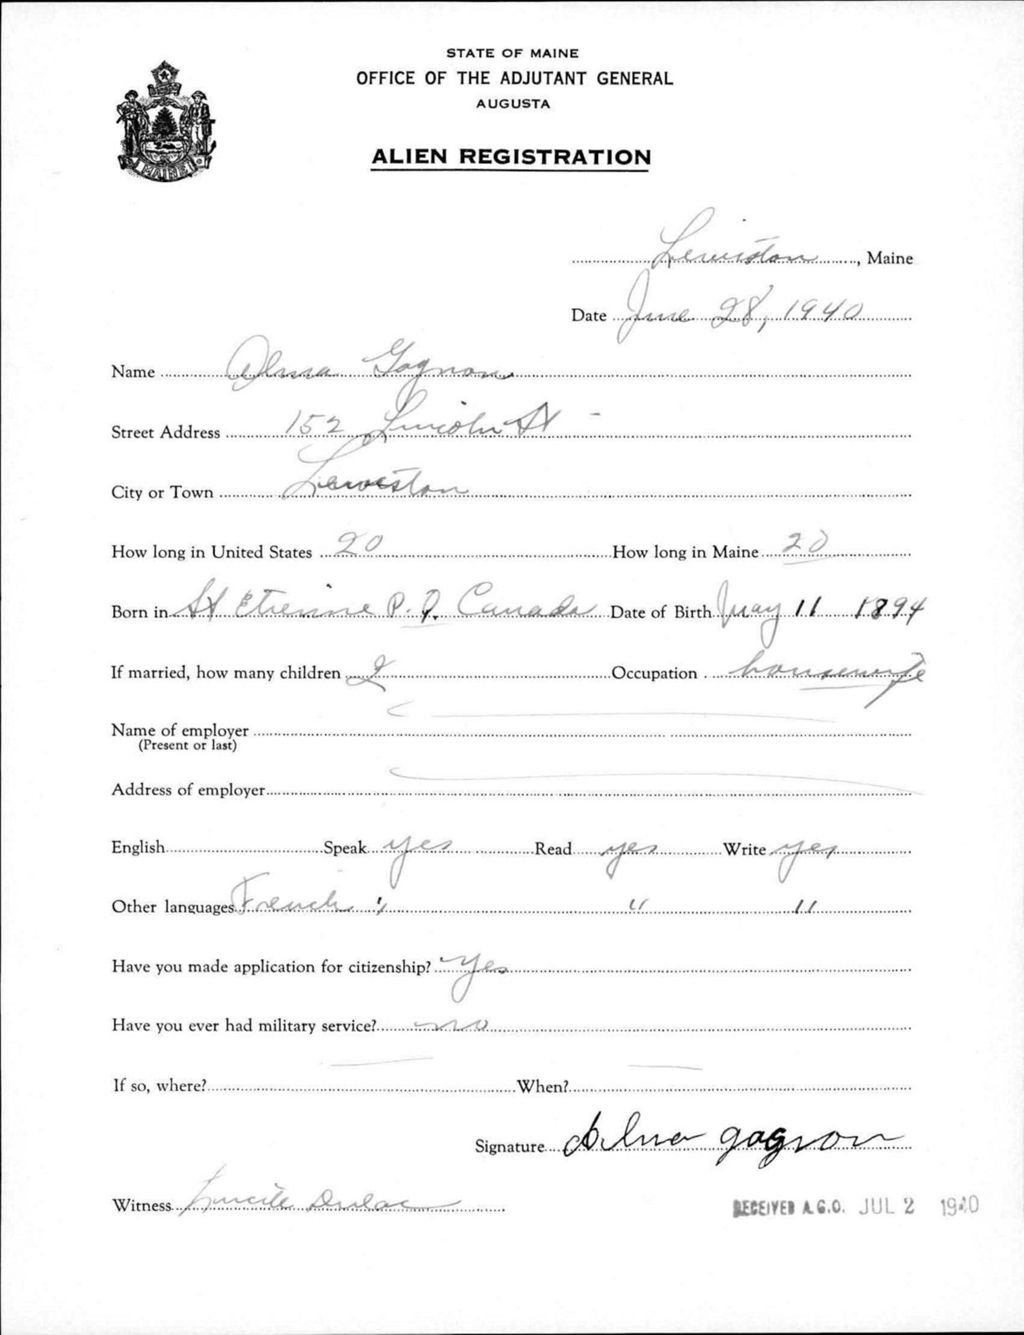 STATE OF MAINE
OFFICE OF THE ADJUTANT GENERAL
AUGUSTA
ALIEN REGISTRATION
MAINE
Lewiston, Maine
Date June 28, 1940
Name Alma Gagnon
Street Address 152 Lincoln St -
City or Town Lewiston
How long in United States 20 How long in Maine 20
Born in St Etienne P. Q. Canada Date of Birth May 11 1894
If married, how many children 2 Occupation housewife
Name of employer
(Present or last)
Address of employer
English Speak yes Read yes Write yes
Other languages French " " "
Have you made application for citizenship? Yes
Have you ever had military service? no
If so, where? When?
Signature Alma gagnon
Witness Lucile Dulac
RECEIVED A.G.O. JUL 2 1940